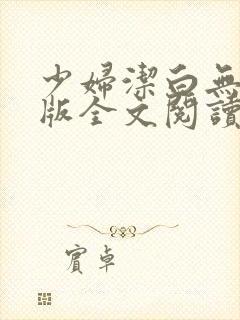 少婦潔白無
版全文閱讀
賓卓